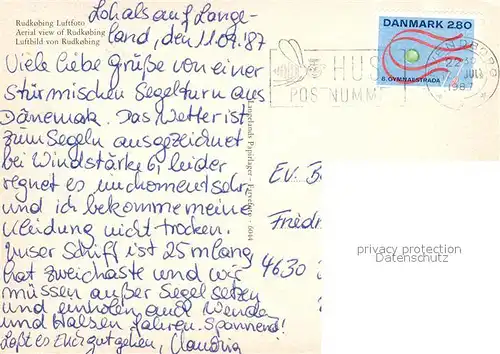 Rudkøbing Luftfoto
Aerial view of Rudkøbing
Luftbild von Rudkøbing
Lohals auf Lange-
land, den 11.07.87
Viele liebe Grüße von einer
stürmischen Segelturn aus
Dänemark. Das Wetter ist
zum Segeln ausgezeichnet
bei Windstärke 6, leider
regnet es im moment sehr
und ich bekomme meine
Kleidung nicht trocken.
Unser Schiff ist 25 m lang
hat zwei Maste und wir
müssen außer Segel setzen
und einholen auch Wenden
und Halsen fahren. Spannend!
Laßt es Euch gut gehen, Claudia
Langelands Papirlager - Eneret
DANMARK 2.80
8. GYMNAESTRADA
HUSK
POSTNUMMER
SVENDBORG
1987
EV. B
Friedr
4630
privacy protection
Datenschutz